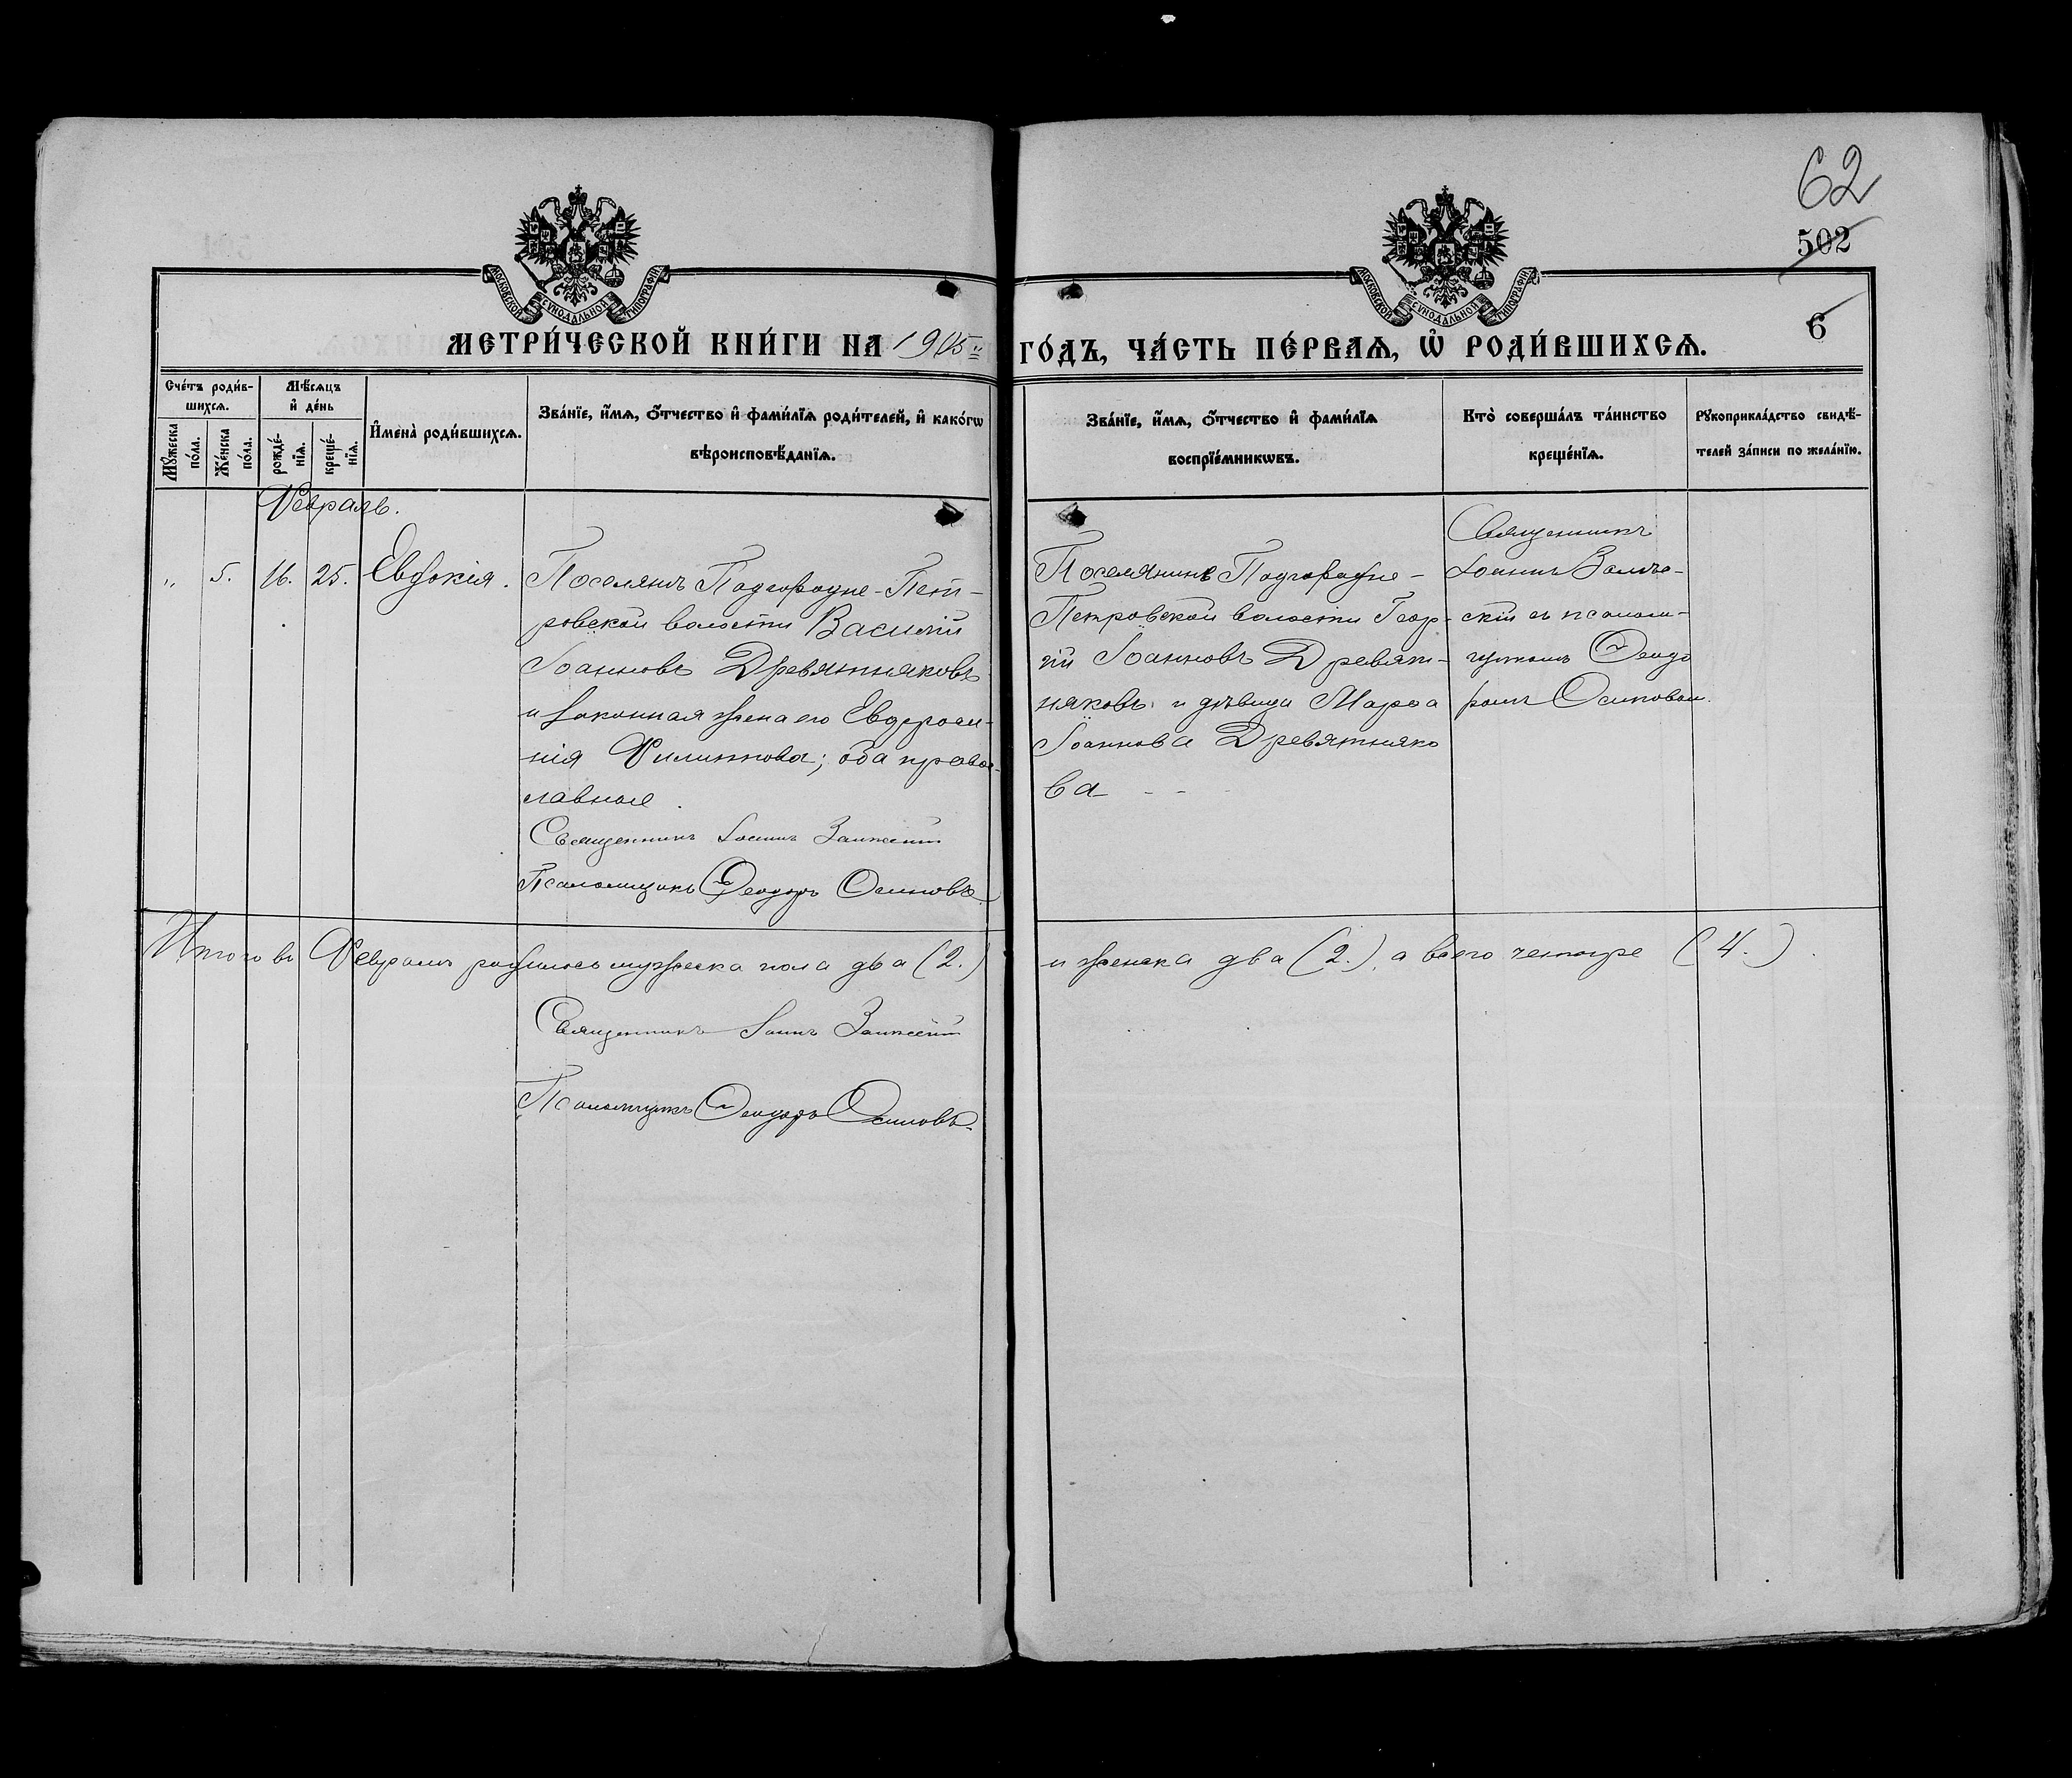 62
502
6
МОСКОВСКОЙ СѴНОДАЛЬНОЙ ТИПОГРАФІИ
МОСКОВСКОЙ СѴНОДАЛЬНОЙ ТИПОГРАФІИ
МЕТРИ́ЧЕСКОЙ КНИ́ГИ НА 1905 ГО́ДЪ, ЧА́СТЬ ПЕ́РВАѦ, Ѽ РОДИ́ВШИХСѦ.
Сче́тъ роди́в-
шихсѧ.
Мꙋ́жеска по́ла.
Же́нска по́ла.
Мѣ́сѧцъ
и҆ де́нь
рожде́-
нїѧ.
креще́-
нїѧ.
И҆мена̀ роди́вшихсѧ.
Зва́нїе, и҆́мѧ, ѻ҆́тчество и҆ фами́лїѧ роди́телей, и҆ како́гѡ
вѣроисповѣ́данїѧ.
Зва́нїе, и҆́мѧ, ѻ҆́тчество и҆ фами́лїѧ
воспрїе́мникѡвъ.
Кто̀ соверша́лъ та́инство
креще́нїѧ.
Рꙋкоприкла́дство свидѣ́-
телей за́писи по жела́нїю.
Февраль.
„ 5. 16. 25. Евдокія.
Поселянъ Подгородне-Пет-
ровской волости Василій
Іоанновъ Древятняковъ
и законная жена его Евдроси-
нія Филиппова; оба право-
славные.
Священникъ Іоаннъ
Псаломщикъ Ѳеодоръ Осиповъ
Поселянинъ Подгородне-
Петровской волости Геор-
гій Іоанновъ Древят-
няковъ и дѣвица Марѳа
Іоаннова Древятняко
ва - - -
Священникъ
Іоаннъ
скій съ псалом-
щикомъ Ѳеодо
ромъ Осиповым.
Итого въ Февралѣ родилось мужеска пола два (2.) и женска два (2.), а всего четыре (4.).
Священникъ Іоаннъ
Псаломщикъ Ѳеодоръ Осиповъ.